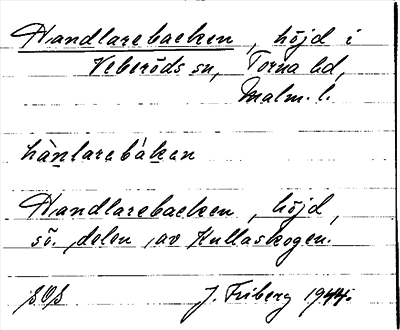 Handlarebacken, höjd i
Veberöds sn, Torna hd,
Malm. l.
hànlarebákan
Handlarebacken, höjd,
sö. delen av Kullaskogen.
SOS J. Friberg 1944.